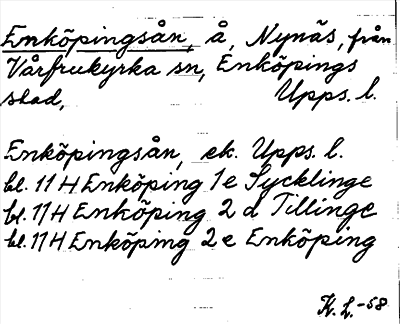 Enköpingsån, å, Nynäs, från
Vårfrukyrka sn, Enköpings
stad, Upps. l.
Enköpingsån, ek. Upps. l.
bl. 11H Enköping 1e Sycklinge
bl. 11H Enköping 2d Tillinge
bl. 11H Enköping 2e Enköping
K. L. -58